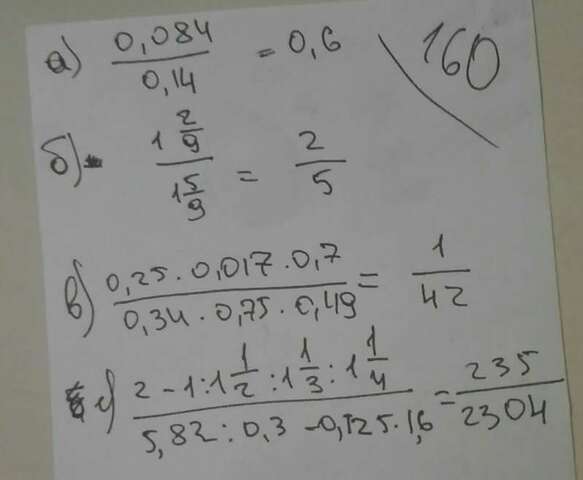 а) 0,084 / 0,14 = 0,6
160
б) 1 2/9 / 1 5/9 = 2/5
в) 0,25 · 0,017 · 0,7 / 0,34 · 0,75 · 0,49 = 1/42
г) 2 - 1 : 1 1/2 : 1 1/3 : 1 1/4 / 5,82 : 0,3 - 0,125 · 1,6 = 235/2304